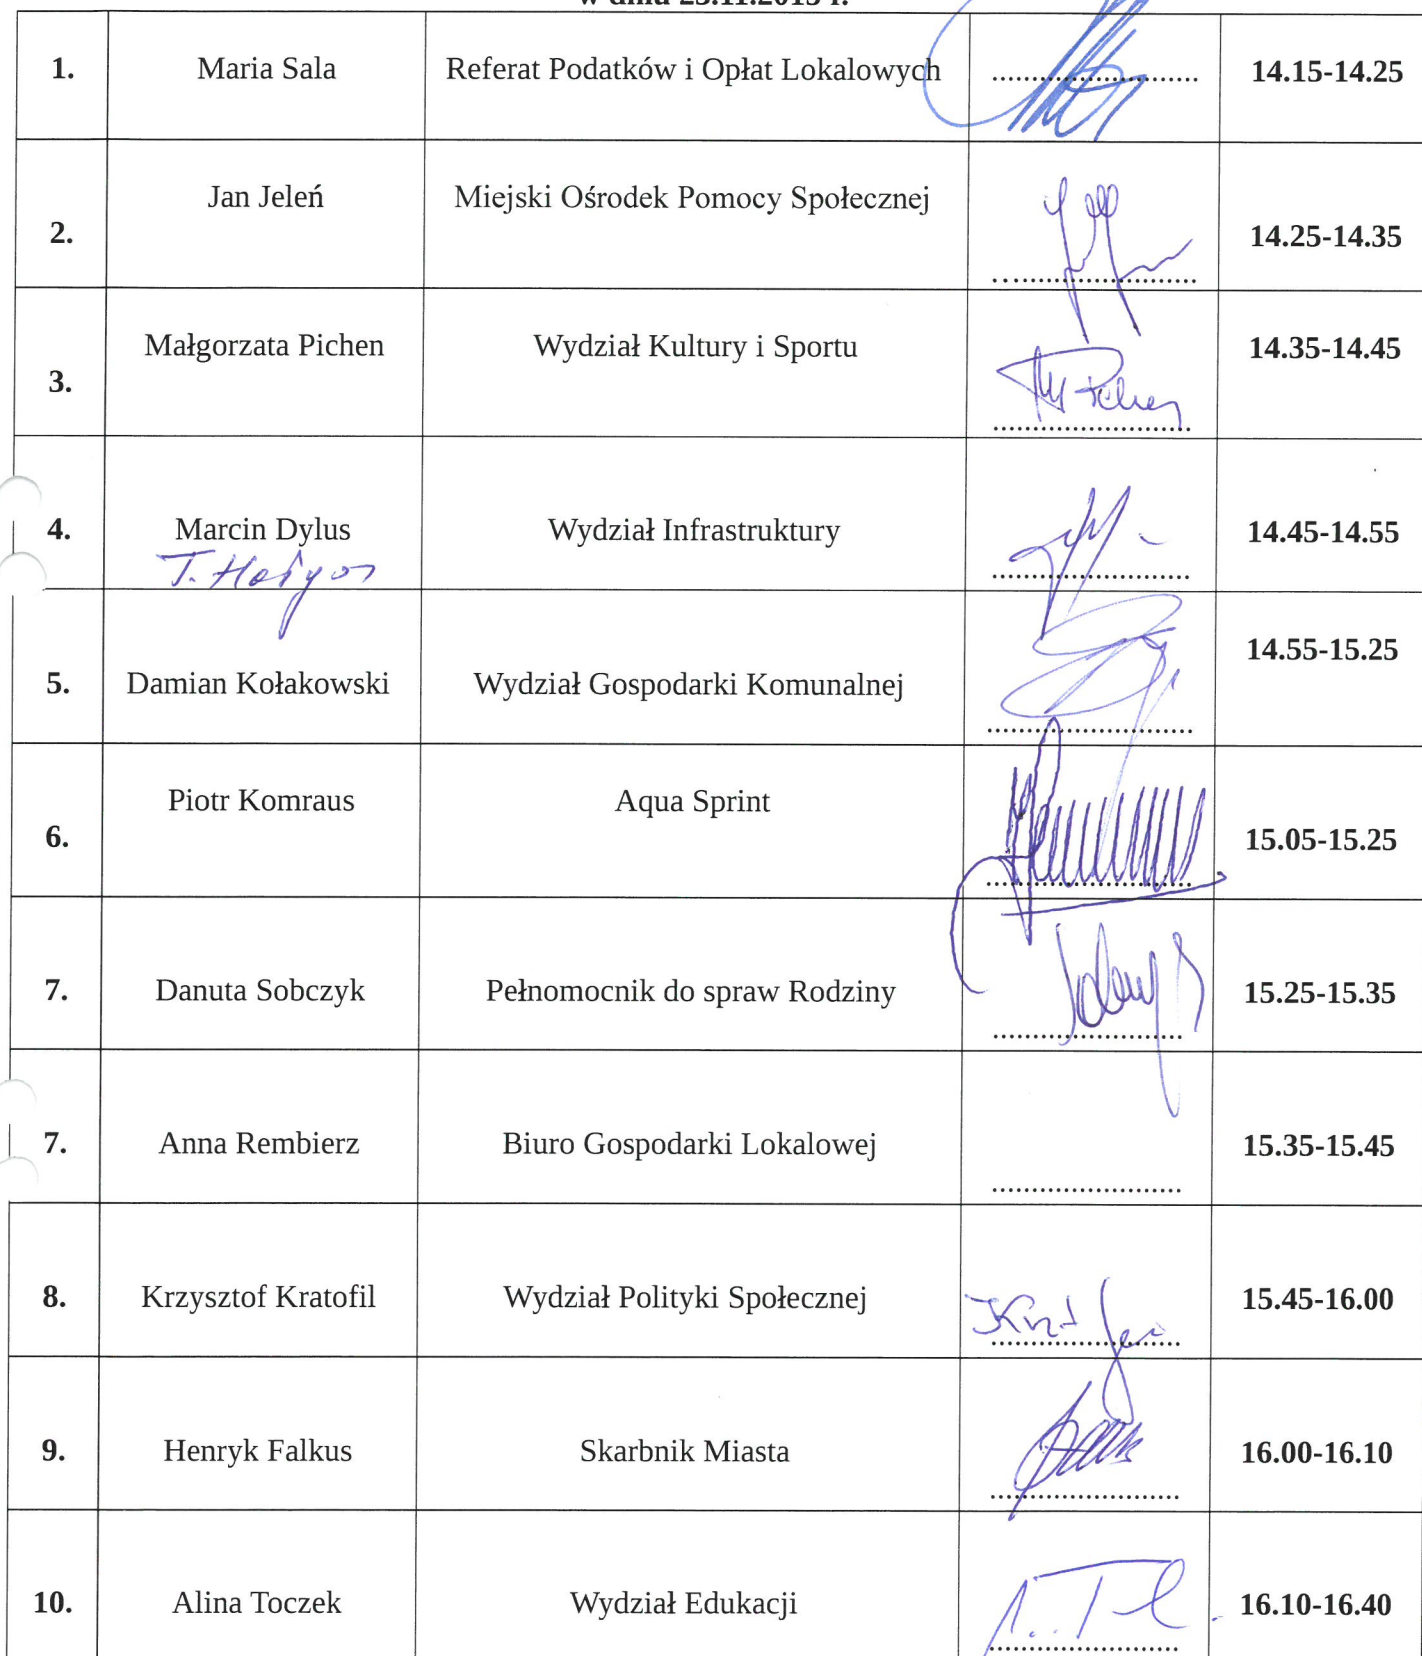 1. Maria Sala Referat Podatków i Opłat Lokalowych 14.15-14.25
2. Jan Jeleń Miejski Ośrodek Pomocy Społecznej 14.25-14.35
3. Małgorzata Pichen Wydział Kultury i Sportu 14.35-14.45
4. Marcin Dylus Wydział Infrastruktury 14.45-14.55
5. Damian Kołakowski Wydział Gospodarki Komunalnej 14.55-15.25
6. Piotr Komraus Aqua Sprint 15.05-15.25
7. Danuta Sobczyk Pełnomocnik do spraw Rodziny 15.25-15.35
7. Anna Rembierz Biuro Gospodarki Lokalowej 15.35-15.45
8. Krzysztof Kratofil Wydział Polityki Społecznej 15.45-16.00
9. Henryk Falkus Skarbnik Miasta 16.00-16.10
10. Alina Toczek Wydział Edukacji 16.10-16.40